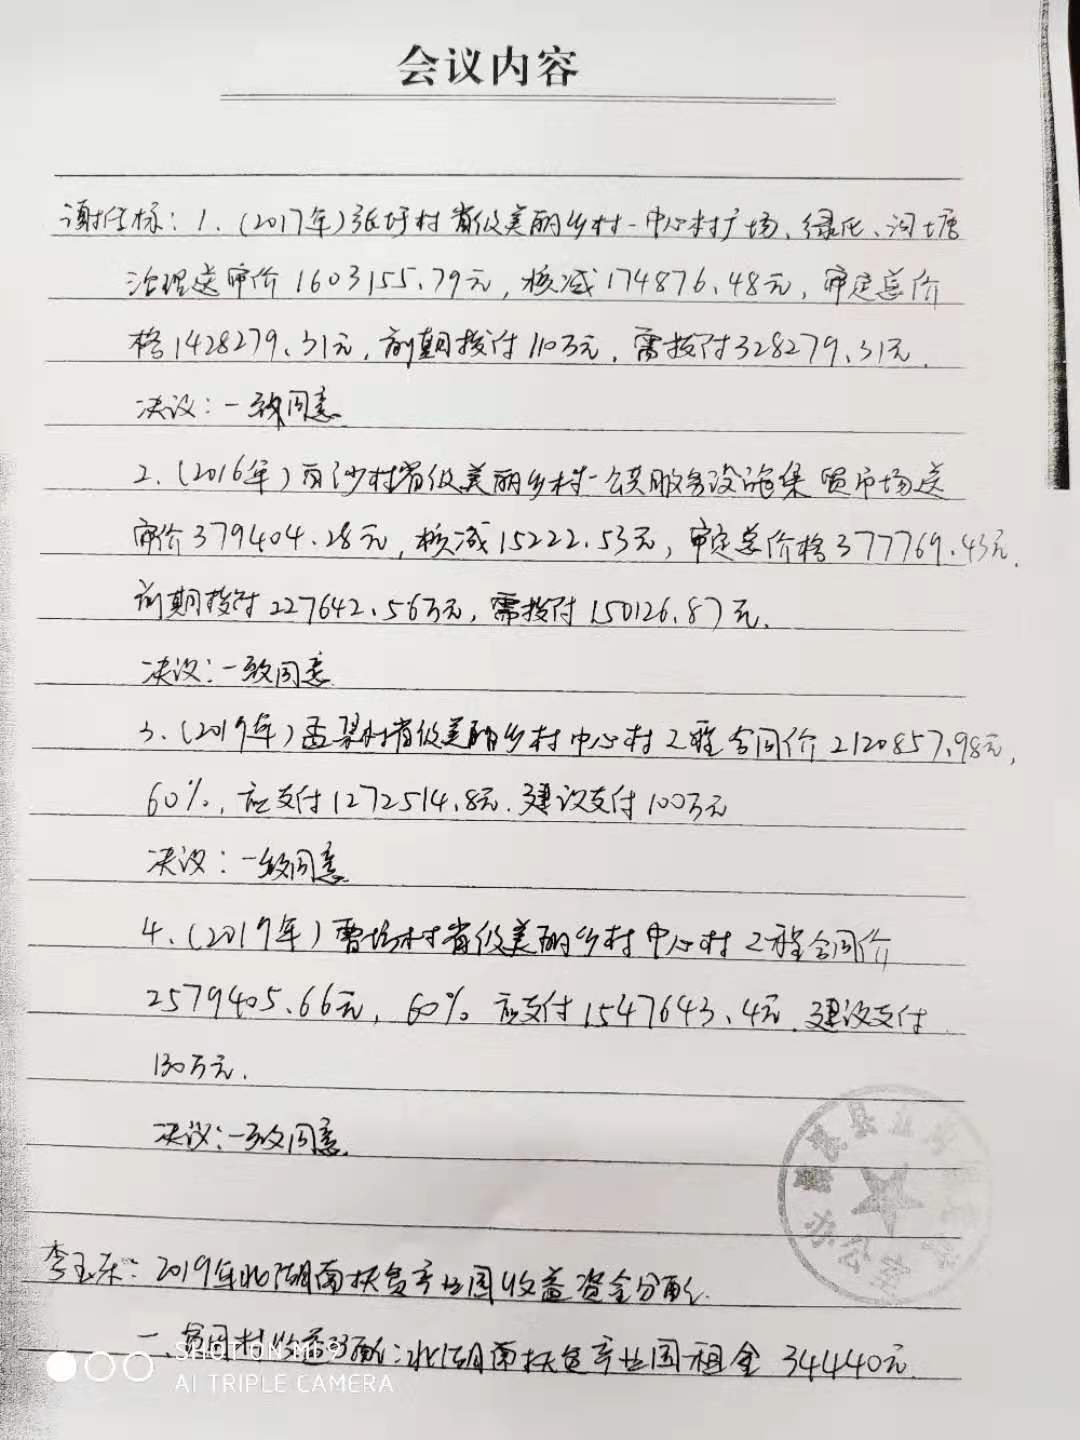 会议内容
谢任标：1、(2017年)张圩村省级美丽乡村-中心村广场、绿化、河塘
治理送审价1603155.79元，核减174876.48元，审定总价
格1428279.31元，前期拨付110万元，需拨付328279.31元.
决议：一致同意
2、(2016年)百沙村省级美丽乡村-公共服务设施集贸市场送
审价379404.28元，核减15222.53元，审定总价格377769.43元.
前期拨付227642.56万元，需拨付150126.87元.
决议：一致同意
3、(2019年)孟梁村省级美丽乡村中心村工程合同价2120857.98元，
60%，应支付1272514.8元.建议支付100万元
决议：一致同意
4、(2019年)曹场村省级美丽乡村中心村工程合同价
2579405.66元，60%应支付1547643.4元.建议支付
130万元.
决议：一致同意.
李玉东：2019年北湖南扶贫产业园收益资金分配.
一、贫困村收益分配：北湖南扶贫产业园租金34440元.
SHOT ON MI 9
AI TRIPLE CAMERA